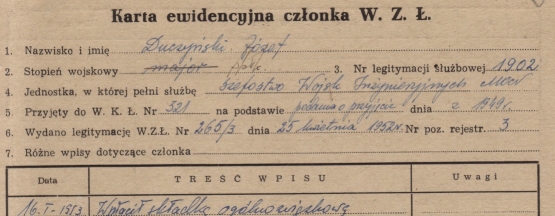 Karta ewidencyjna członka W. Z. Ł.
1. Nazwisko i imię Duczyński Józef
2. Stopień wojskowy major ppłk 3. Nr legitymacji służbowej 1902
4. Jednostka, w której pełni służbę Szefostwo Wojsk Inżynieryjnych MON
5. Przyjęty do W. K. Ł. Nr 321 na podstawie podania o przyjęcie dnia z 1949r.
6. Wydano legitymację W.Z.Ł. Nr 265/3 dnia 25 kwietnia 1952r. Nr poz. rejestr. 3
7. Różne wpisy dotyczące członka
Data TREŚĆ WPISU Uwagi
16.I-1953 Wpłacił składkę ogólnozwiązkową